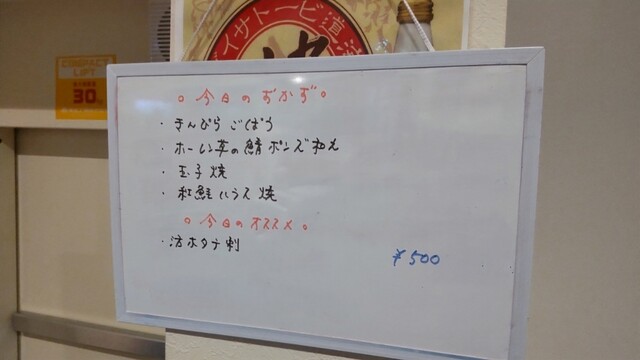 COMPACT
LIFT
30
道産ビートサイダ
。今日のおかず。
・きんぴらごぼう
・ホーレン草の鯖ポンズ和え
・玉子焼
・紅鮭ハラス焼
。今日のオススメ。
・活ホタテ刺
¥500